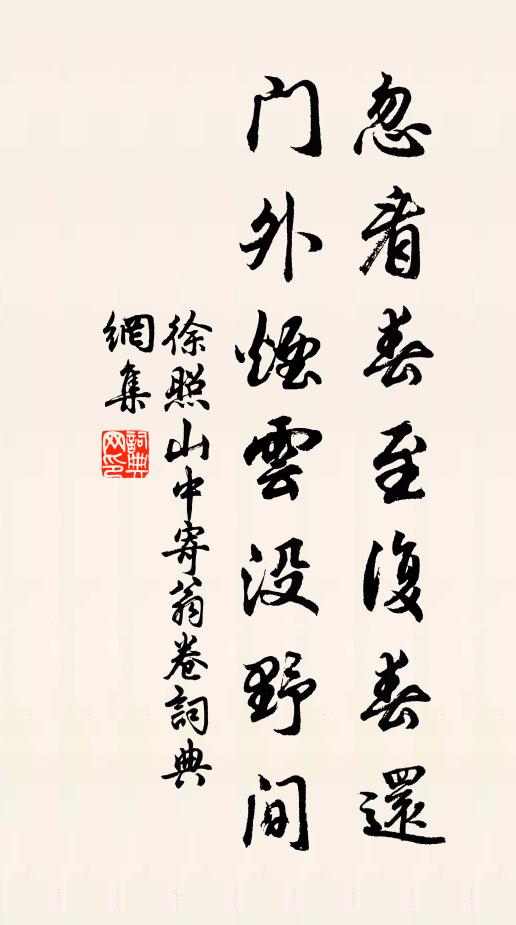 忽看春至復春還
门外煙雲没野间
徐照山中寄翁卷詞典
網集
詞典網印